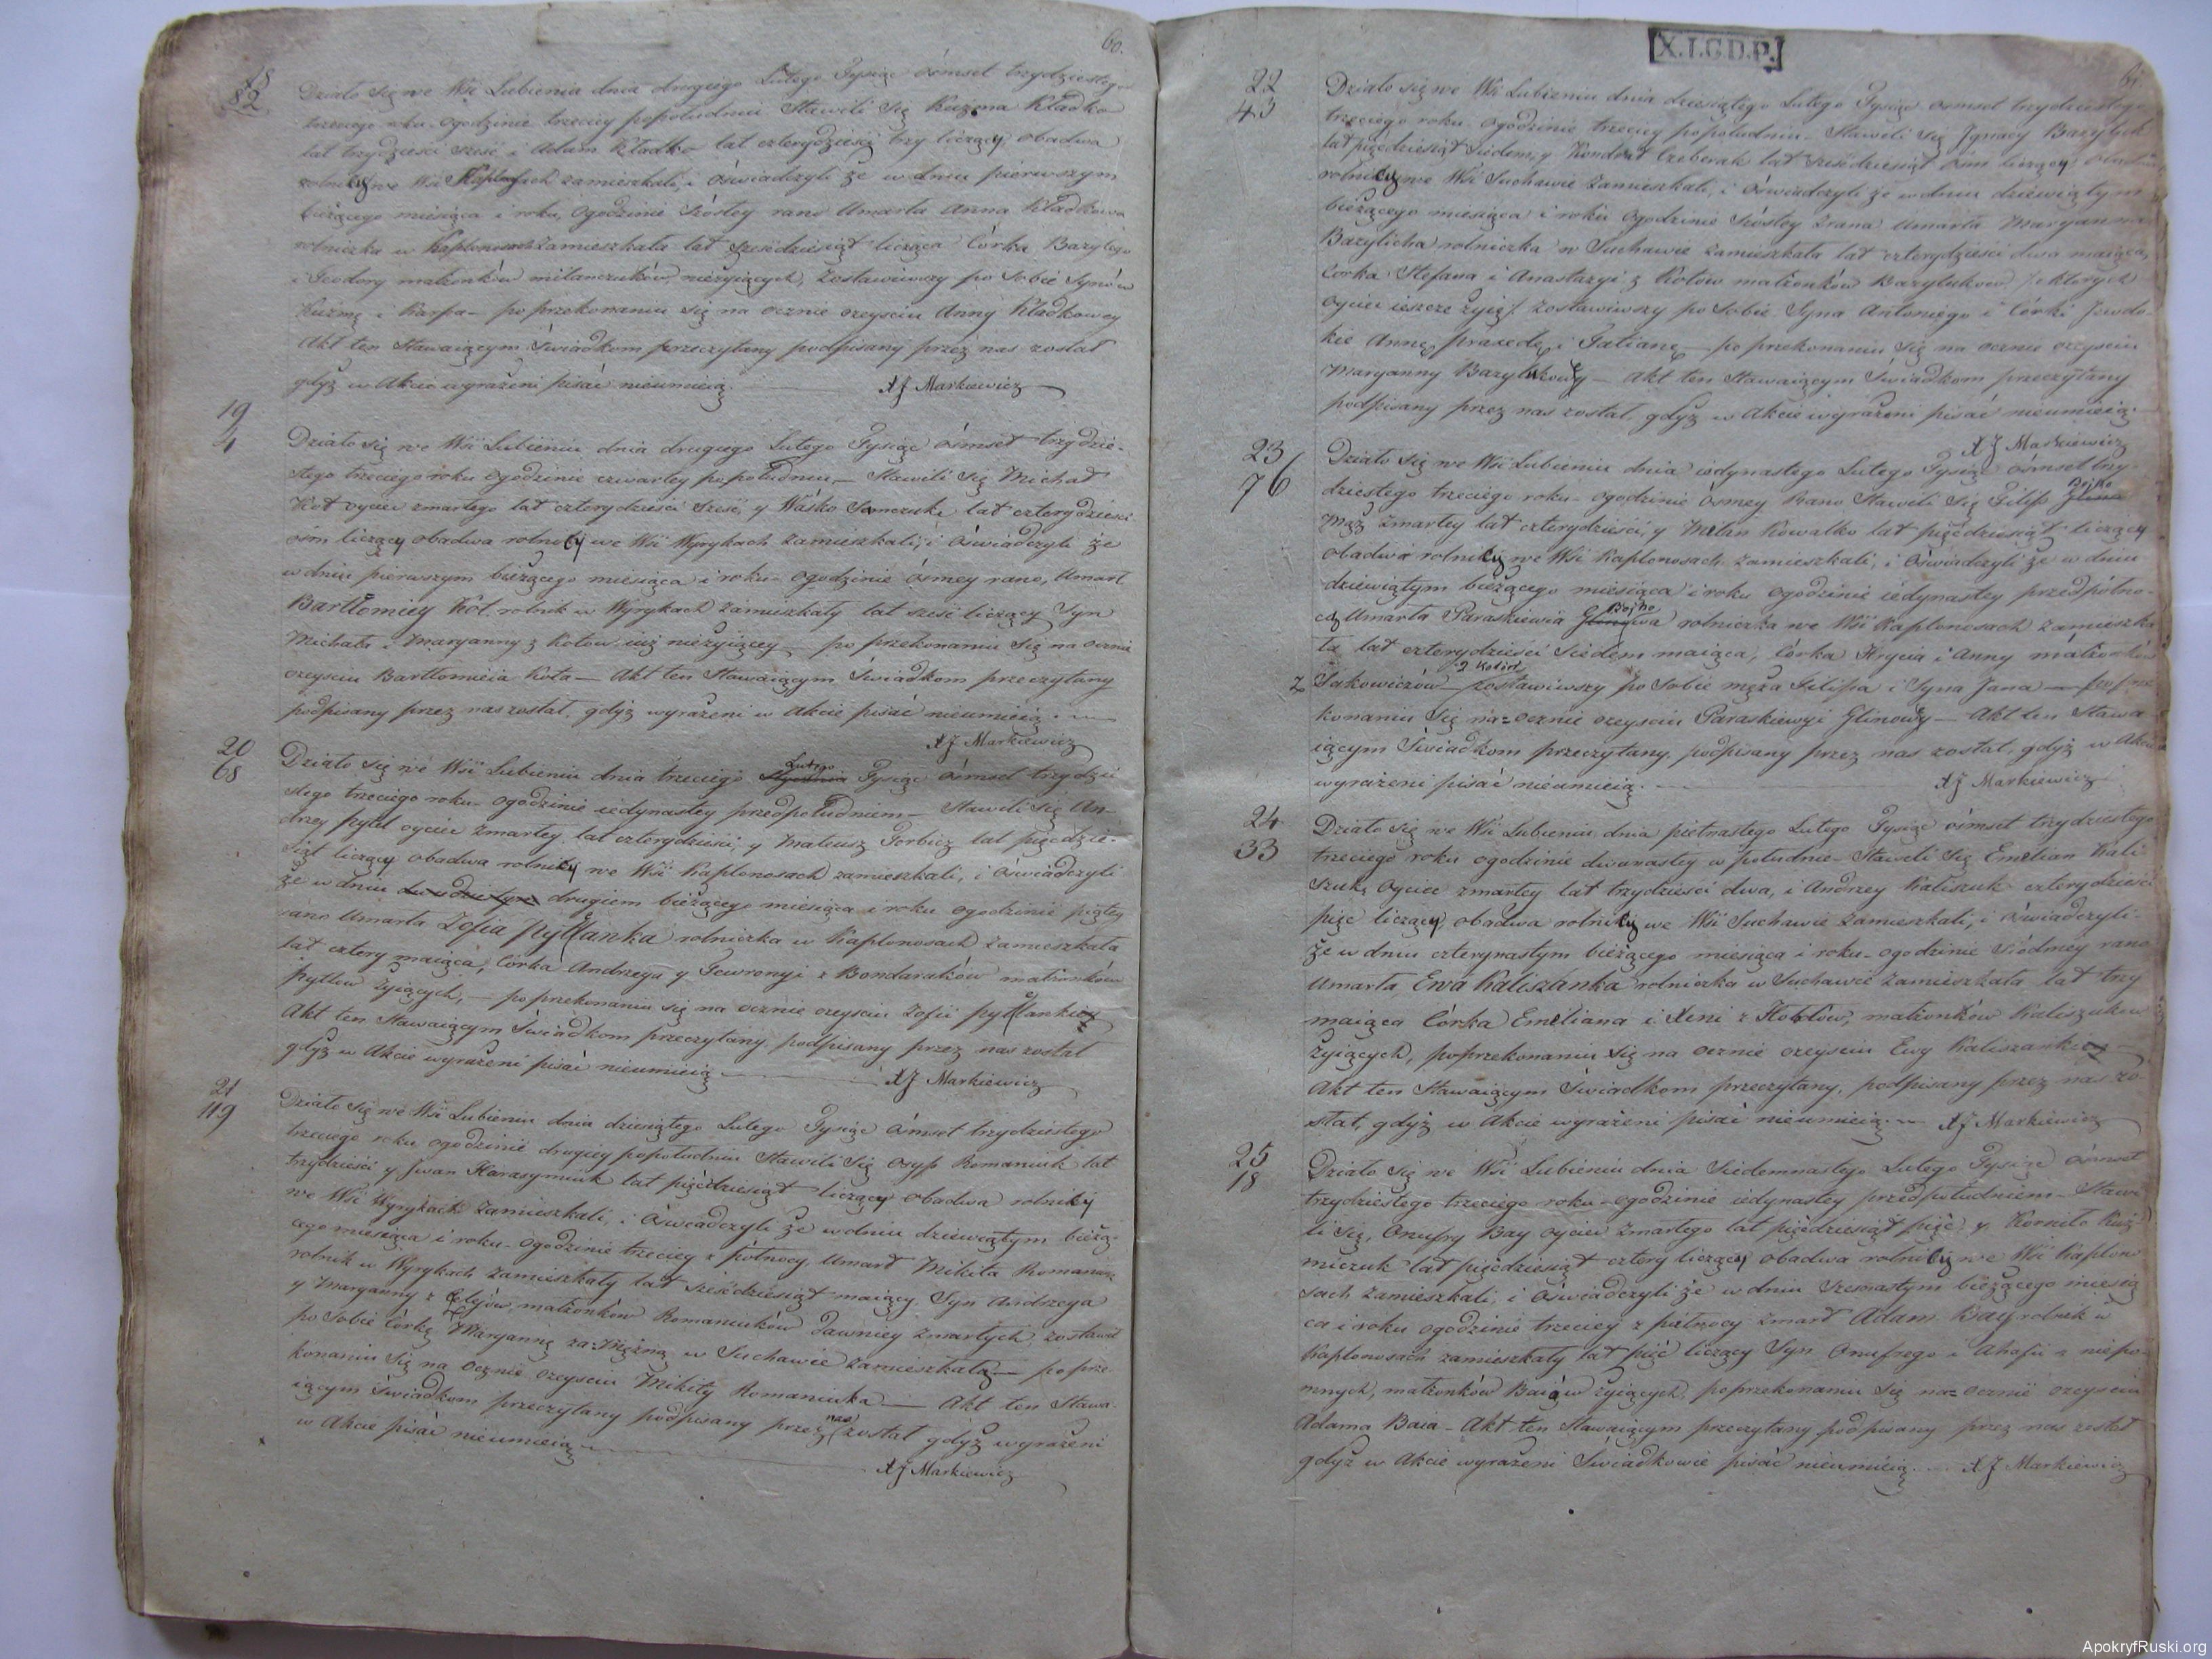 60.
18
82
Działo się we Wsi Lubieniu dnia drugiego Lutego Tysiąc ośmset trzydziestego
trzeciego roku ogodzinie trzeciey popołudniu Stawili się Kuzma Kładko
lat trzydzieści sześć i Adam Kładko lat czterydzieści trzy liczący obadwa
rolnicy we Wsi zamieszkali, i oświadczyli że w dniu pierwszym
bieżącego miesiąca i roku, ogodzinie szóstey rano Umarła Anna Kładkowa
rolniczka w Kaplonosach zamieszkała lat sześćdziesiąt licząca Córka Bazylego
i Teodory małżonków nieżyiących, Zostawiwszy po Sobie Synów
Kuźmę i Karpa – po przekonaniu się na ocznie zeyściu Anny Kładkowey
Akt ten Stawaiącym Świadkom przeczytany podpisany przez nas został
gdyż w Akcie wyrażeni pisać nieumieią. XJ Markiewicz
19
4
Działo się we Wsi Lubieniu dnia drugiego Lutego Tysiąc ośmset trzydzie-
stego trzeciego roku ogodzinie czwartey popołudniu, – Stawili się Michał
Kot oyciec zmarłego lat czterydzieści sześć, y Waśko lat czterydzieści
ośm liczący obadwa rolnicy we Wsi Wyrykach zamieszkali, i oświadczyli że
w dniu pierwszym bieżącego miesiąca i roku – ogodzinie ósmey rano, Umarł
Bartłomiey Kot rolnik w Wyrykach zamieszkały lat sześć liczący Syn
Michała i Maryanny z Kotów iuż nieżyiącey – po przekonaniu się na ocznie
zeyściu Bartłomieia Kota – Akt ten Stawaiącym Świadkom przeczytany
podpisany przez nas został, gdyż wyrażeni w Akcie pisać nieumieią.
XJ Markiewicz
20
68
Lutego
Działo się we Wsi Lubieniu dnia trzeciego Stycznia Tysiąc ośmset trzydzie
stego trzeciego roku – ogodzinie iedynastey przedpołudniem – Stawili się An-
drzey Pytel oyciec zmarłey lat czterydzieści, y Mateusz Torbicz lat pięćdzie-
siąt liczący obadwa rolnicy we Wsi Kaplonosach zamieszkali, i oświadczyli
że w dniu drugiem bieżącego miesiąca i roku ogodzinie piątey
rano Umarła Zofia Pytlanka rolniczka w Kaplonosach zamieszkała
lat cztery maiąca, Córka Andrzeya y Tewronyi z Bondaraków małżonków
Pytlów żyiących, – po przekonaniu się na ocznie zeyściu Zofii Pytlanki
Akt ten Stawaiącym Świadkom przeczytany podpisany przez nas został
gdyż w Akcie wyrażeni pisać nieumieią XJ Markiewicz
21
119
Działo się we Wsi Lubieniu dnia dziesiątego Lutego Tysiąc ośmset trzydziestego
trzeciego roku ogodzinie drugiey popołudniu Stawili się Osyp Romaniuk lat
trzydzieści y Iwan Harasymiuk lat pięćdziesiąt liczący obadwa rolnicy
we Wsi Wyrykach zamieszkali, i oświadczyli że w dniu dziewiątym bieżą-
cego miesiąca i roku – ogodzinie trzeciey z północy Umarł Mikita Romaniuk
rolnik w Wyrykach zamieszkały lat sześćdziesiąt maiący Syn Andrzeya
y Maryanny z małżonków Romaniuków dawniey zmarłych, zostawił
po Sobie Córkę Maryannę za-Mężną w Suchawie zamieszkałą – po prze
konaniu się na ocznie zeyściu Mikity Romaniuka – Akt ten Stawa-
iącym Świadkom przeczytany podpisany przez nas został gdyż wyrażeni
w Akcie pisać nieumieią
XJ Markiewicz
X.I.G.D.P.
61.
22
43
Działo się we Wsi Lubieniu dnia dziesiątego Lutego Tysiąc ośmset trzydziestego
trzeciego roku ogodzinie trzeciey popołudniu – Stawili się Jgnacy Bazyluk
lat pięćdziesiąt siedem, y Kondrat Czeberak lat sześćdziesiąt ośm liczący obadwa
rolnicy we Wsi Suchawie zamieszkali, i oświadczyli że w dniu dziewiątym
bieżącego miesiąca i roku ogodzinie szóstey zrana Umarła Maryanna
Bazylicha rolniczka w Suchawie zamieszkała lat czterydzieści dwa maiąca,
Córka Stefana i Anastazyi z Kotów małżonków Bazyluków /: z których
oyciec ieszcze żyie :/ zostawiwszy po Sobie Syna Antoniego i Córki Jewdo-
kię Annę, Praxedę i Tatiannę – po przekonaniu się na ocznie zeyściu
Maryanny Bazylukowey – Akt ten Stawaiącym Świadkom przeczytany
podpisany przez nas został, gdyż w Akcie wyrażeni pisać nieumieią.
XJ Markiewicz
23
76
Działo się we Wsi Lubieniu dnia iedynastego Lutego Tysiąc ośmset trzy-
Boyko
dziestego trzeciego roku – ogodzinie ósmey Rano Stawili się Filip Glina
Mąż zmarłey lat czterydzieści, y Milan Kowalko lat pięćdziesiąt liczący
obadwa rolnicy we Wsi Kaplonosach zamieszkali, i oświadczyli że w dniu
dziewiątym bieżącego miesiąca i roku ogodzinie iedynastey przedpółno-
Boyko
cą Umarła Paraskiewia Glinowa rolniczka we Wsi Kaplonosach zamieszka
ła lat czterydzieści siedem maiąca, Córka Hrycia i Anny małżonków
z Sakowiczów – zostawiwszy po Sobie męża Filipa i Syna Jana – po prze
konaniu się na-ocznie zeyściu Paraskiewyi Glinowy – Akt ten Stawa
iącym Świadkom przeczytany, podpisany przez nas został, gdyż w Akcie
wyrażeni pisać nieumieią. XJ Markiewicz
24
33
Działo się we Wsi Lubieniu dnia pietnastego Lutego Tysiąc ośmset trzydziestego
trzeciego roku ogodzinie dwunastey w południe – Stawili się Emelian Kali
szuk, oyciec zmarłey lat trzydzieści dwa, i Andrzey Kaliszuk czterydzieści
pięć liczący obadwa rolnicy we Wsi Suchawie zamieszkali, i oświadczyli
że w dniu czternastym bieżącego miesiąca i roku – ogodzinie siódmey rano
Umarła, Ewa Kaliszanka rolniczka w Suchawie zamieszkała lat trzy
maiąca Córka Emeliana i Xeni z małżonków Kaliszuków
żyiących, po przekonaniu się na ocznie zeyściu Ewy Kaliszanki
Akt ten Stawaiącym Świadkom przeczytany, podpisany przez nas zo-
stał, gdyż w Akcie wyrażeni pisać nieumieią. XJ Markiewicz
25
18
Działo się we Wsi Lubieniu dnia siedemnastego Lutego Tysiąc ośmset
trzydziestego trzeciego roku – ogodzinie iedynastey przedpołudniem – Stawi
li się, Onufry Bay oyciec zmarłego lat pięćdziesiąt pięć y Korniło Kuź-
miczuk lat pięćdziesiąt cztery liczący obadwa rolnicy we Wsi Kaplono
sach zamieszkali, i oświadczyli że w dniu szesnastym bieżącego miesią
ca i roku ogodzinie trzeciey z północy zmarł Adam Bay rolnik w
Kaplonosach zamieszkały lat pięć liczący Syn Onufrego i Ahafii z niepo-
mnych, małżonków Baiów żyiących, po przekonaniu się na-ocznie zeyściu
Adama Baia – Akt ten Stawaiącym przeczytany podpisany przez nas został
gdyż w Akcie wyrażeni Świadkowie pisać nieumieią. XJ Markiewicz
ApokryfRuski.org